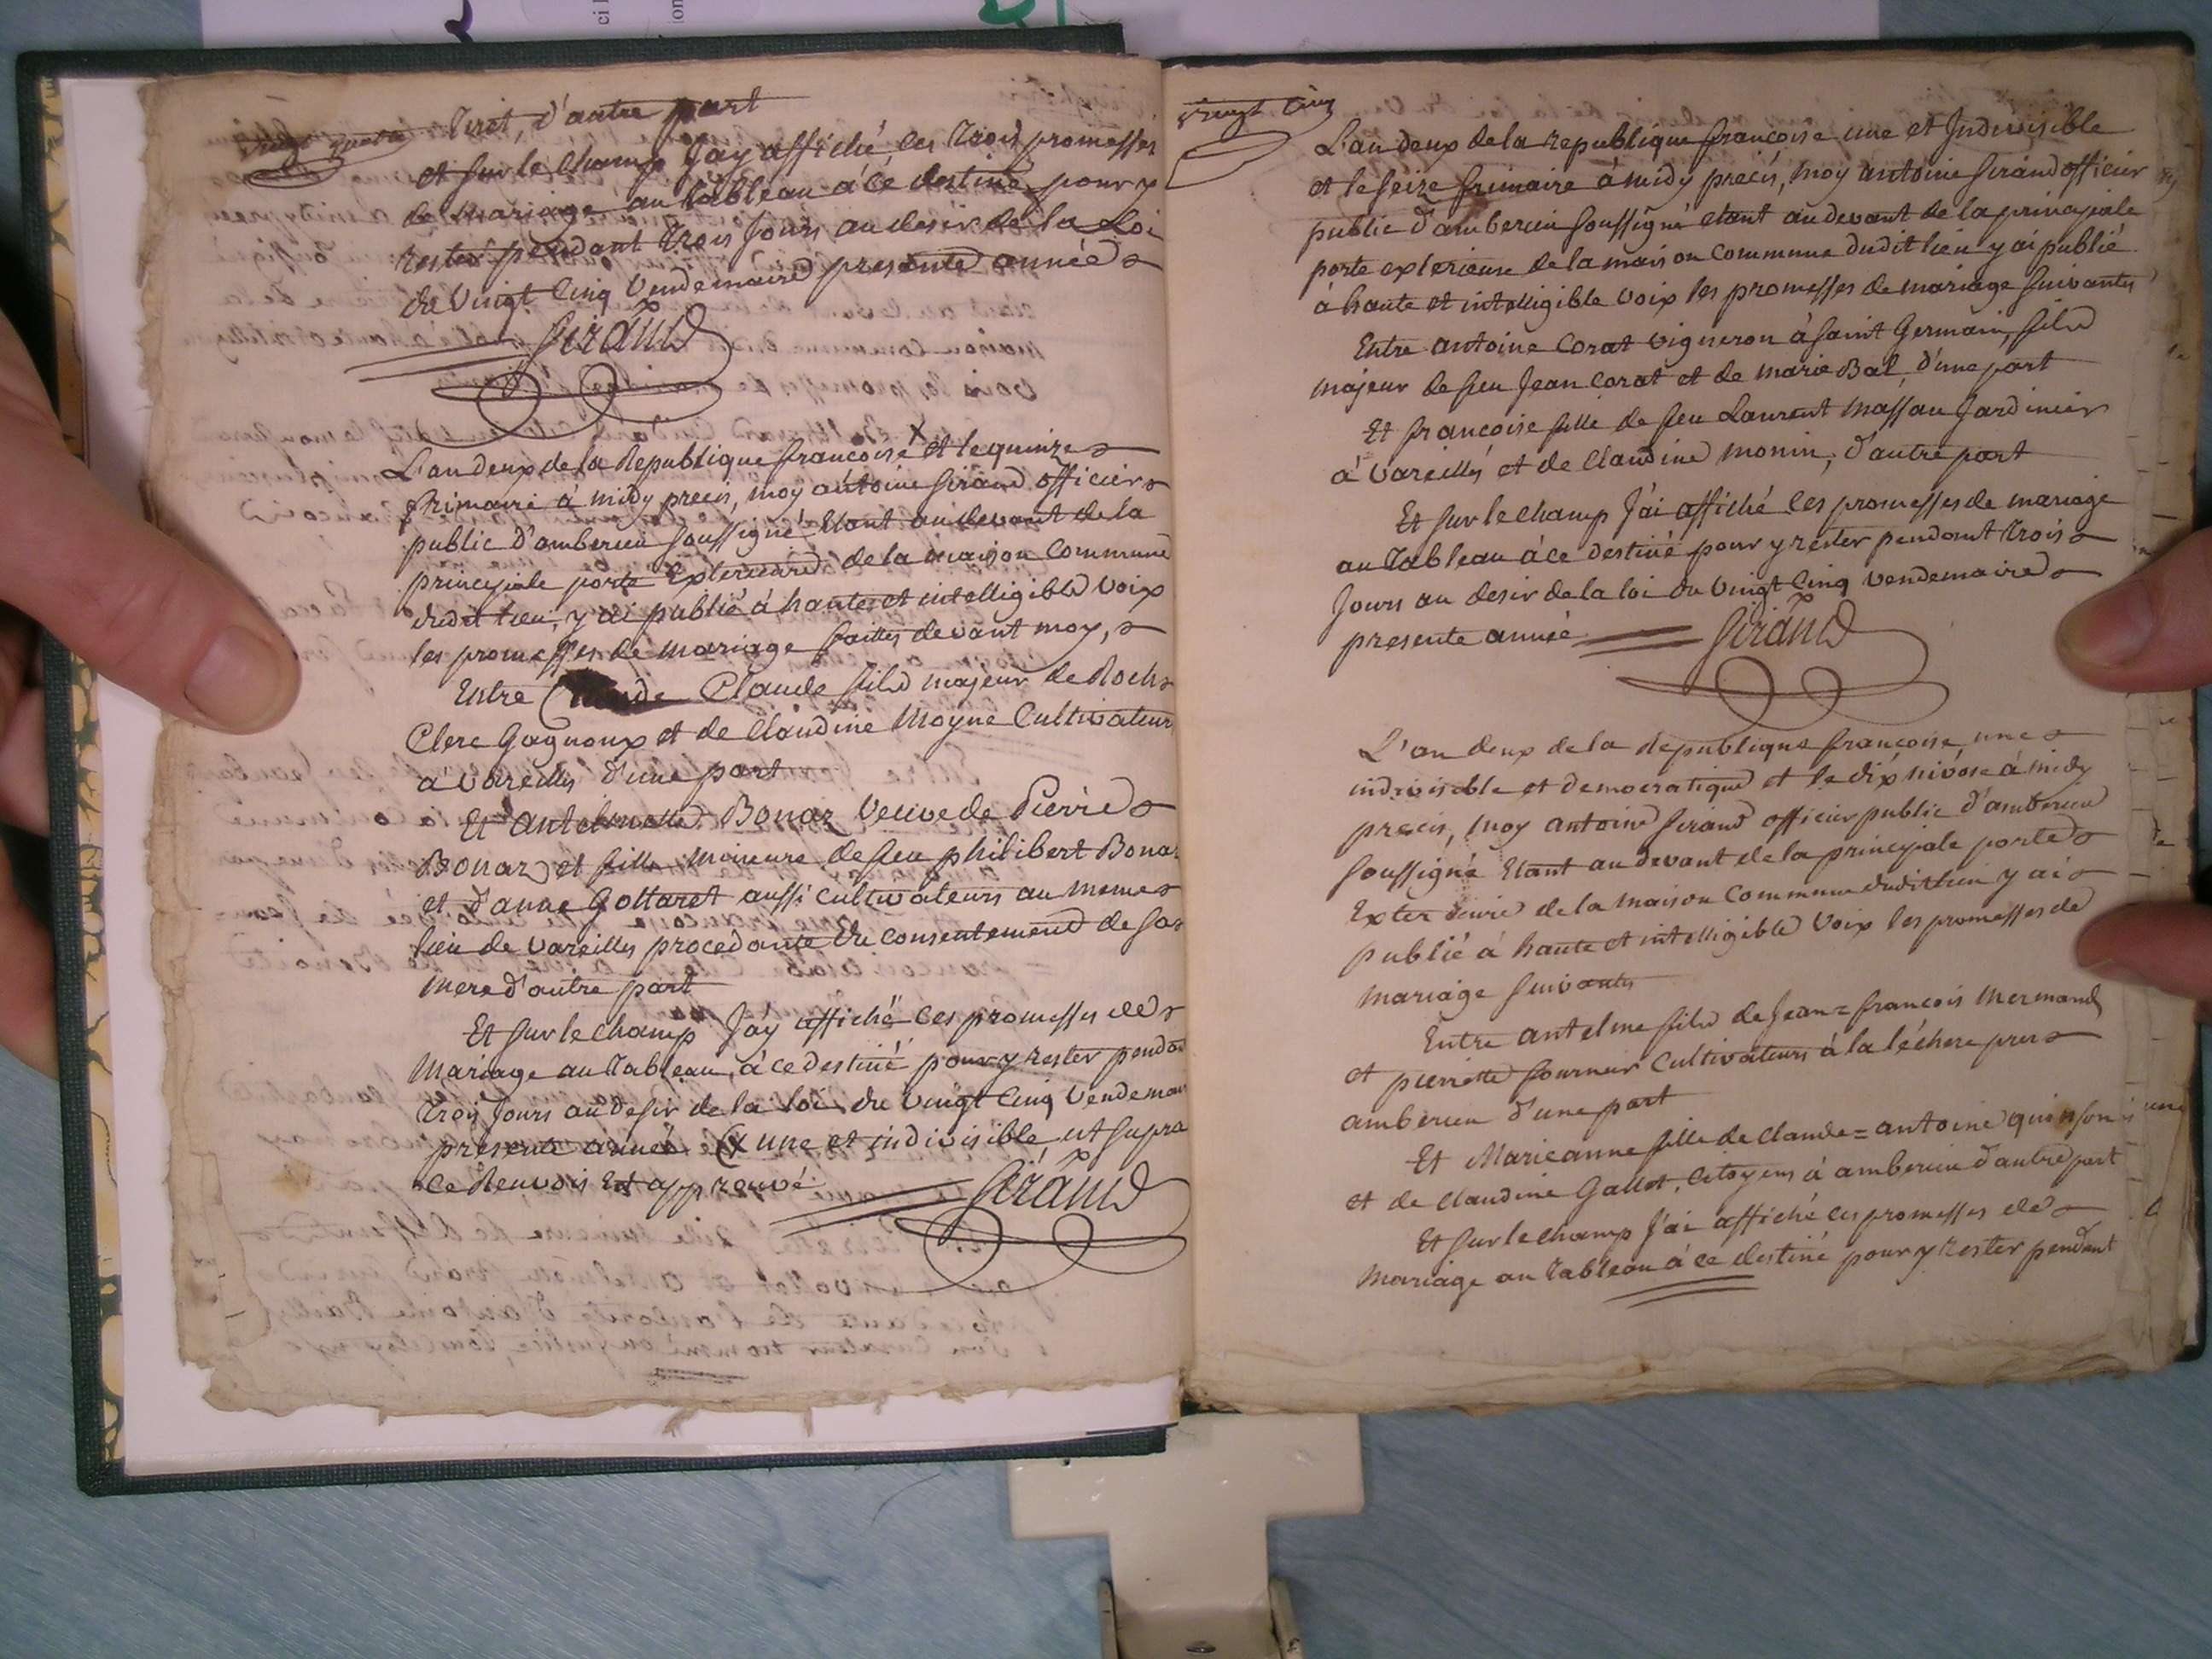 vingt quatre
Tiret, d'autre part
et sur le champ J'ay affiché les trois promesses
de mariage au tableau á ce destiné pour y
rester pendant trois Jours au desir de la Loi
du vingt Cinq Vendemaire presente année
Giraud
L'an deux de la Republique francoise X et le quinze
frimaire á midy precis, moy antoine Giraud officier
public d'amberieu soussigné Etant au devant de la
principale porte Exterieure de la maison Commune
dudit lieu, y ai publié á haute et intelligible voix
les promesses de mariage faittes devant moy,
Entre Claude fils majeur de Roch
Clerc Gagnoux et de Claudine Moyne Cultivateurs
a vareilles d'une part
Et antelmette Bonaz Veuve de Pierre
Bonaz et fille mineure de feu philibert Bonaz
et d'anne Gottaret aussi cultivateurs au meme
lieu de vareilles procedante du consentement de sa
mere d'autre part
Et sur le champ J'ay affiché ces promesses de
Mariage au tableau, á ce destiné pour y rester pendant
trois Jours au desir de la loi du vingt Cinq Vendemaire
presente année (X une et indivisible ut supra
Ce Renvois Est approuvé
Giraud
vingt Cinq
L'an deux de la republique francoise une et Indivisible
et le seize frimaire á midy precis, moy antoine Giraud officier
public d'amberieu soussigné etant au devant de la principale
porte exterieure de la maison commune dudit lieu y ai publié
á haute et intelligible voix les promesses de mariage suivantes
Entre antoine Corat vigneron á saint Germain, fils
majeur de feu Jean Corat et de marie Bal, d'une part
Et francoise fille de feu Laurent Massau Jardinier
á vareilles et de Claudine monin, d'autre part
Et sur le champ J'ai affiché ces promesses de mariage
au tableau á ce destiné pour y rester pendant trois
Jours au desir de la loi du vingt Cinq vendemaire
presente année
Giraud
L'an deux de la Republique francoise, une
indivisible et democratique et le dix nivose á midy
precis, moy antoine Giraud officier public d'amberieu
soussigné Etant au devant de la principale porte
Exterieure de la maison Commune dudit lieu y ai
publié á haute et intelligible voix les promesses de
mariage suivantes
Entre antelme fils de Jean = francois Mermand
et pierrette fournier Cultivateurs á la léchere pres
amberieu d'une part
Et Marieanne fille de claude = antoine quinson
et de Claudine Gallet, Citoyens á amberieu d'autre part
Et sur le champ J'ai affiché ces promesses de
mariage au tableau á ce destiné pour y rester pendant